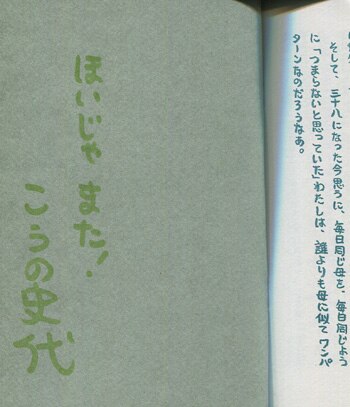 そして、三十八になった今思うに、毎日同じ母を、毎日同じよう
に「つまらないと思っていた」わたしは、誰よりも母に似てワンパ
ターンなのだろうなあ。
ほいじゃ また!
こうの史代